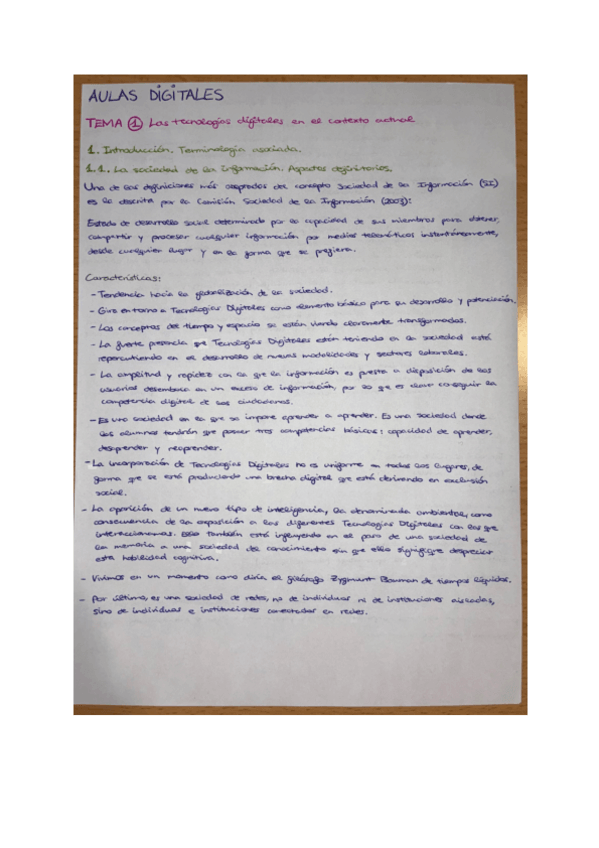 AULAS DIGITALES
TEMA 1 Las tecnologías digitales en el contexto actual
1. Introducción. Terminología asociada.
1.1. La sociedad de la información. Aspectos definitorios.
Una de las definiciones más aceptadas del concepto Sociedad de la Información (SI)
es la descrita por la Comisión Sociedad de la Información (2003):
Estado de desarrollo social determinado por la capacidad de sus miembros para obtener,
compartir y procesar cualquier información por medios telemáticos instantáneamente,
desde cualquier lugar y en la forma que se prefiera.
Características:
- Tendencia hacia la globalización de la sociedad.
- Gira en torno a Tecnologías Digitales como elemento básico para su desarrollo y potenciación.
- Los conceptos del tiempo y espacio se están viendo claramente transformados.
- La fuerte presencia que Tecnologías Digitales están teniendo en la sociedad está
repercutiendo en el desarrollo de nuevas modalidades y sectores laborales.
- La amplitud y rapidez con la que la información es puesta a disposición de los
usuarios desemboca en un exceso de información, por lo que es clave conseguir la
competencia digital de los ciudadanos.
- Es una sociedad en la que se impone aprender a aprender. Es una sociedad donde
los alumnos tendrán que poseer tres competencias básicas: capacidad de aprender,
desaprender y reaprender.
- La incorporación de Tecnologías Digitales no es uniforme en todos los lugares, de
forma que se está produciendo una brecha digital que está derivando en exclusión
social.
- La aparición de un nuevo tipo de inteligencia, la denominada ambiental, como
consecuencia de la exposición a las diferentes Tecnologías Digitales con las que
interaccionamos. Ello también está influyendo en el paso de una sociedad de
la memoria a una sociedad del conocimiento sin que ello signifique despreciar
esta habilidad cognitiva.
- Vivimos en un momento como diría el filósofo Zygmunt Bauman de tiempos líquidos.
- Por último, es una sociedad de redes, no de individuos ni de instituciones aisladas,
sino de individuos e instituciones conectados en redes.